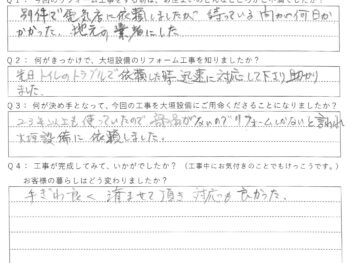 別件で電気店に依頼しましたが 待っている間が何日か
かかった。地元の業者にした
Q2：何がきっかけで、大垣設備のリフォーム工事を知りましたか？
先日トイレのトラブルで依頼した時 迅速に対応して下さり 助かり
ました。
Q3：何が決め手となって、今回の工事を大垣設備にご用命くださることになりましたか？
23年以上も使っていたので 部品がないのでリフォームしかないと言われ
大垣設備に依頼しました。
Q4：工事が完成してみて、いかがでしたか？（工事中にお気付きのことでもけっこうです。）
お客様の暮らしはどう変わりましたか？
手ぎわ良く 済ませて頂き 対応も 良かった。